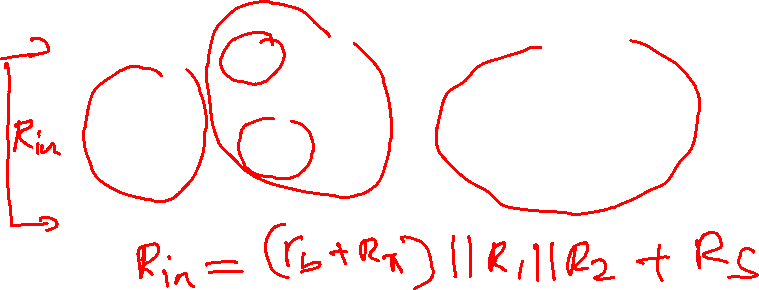 Rin
Rin = (rb + Rπ) || R1 || R2 + RS